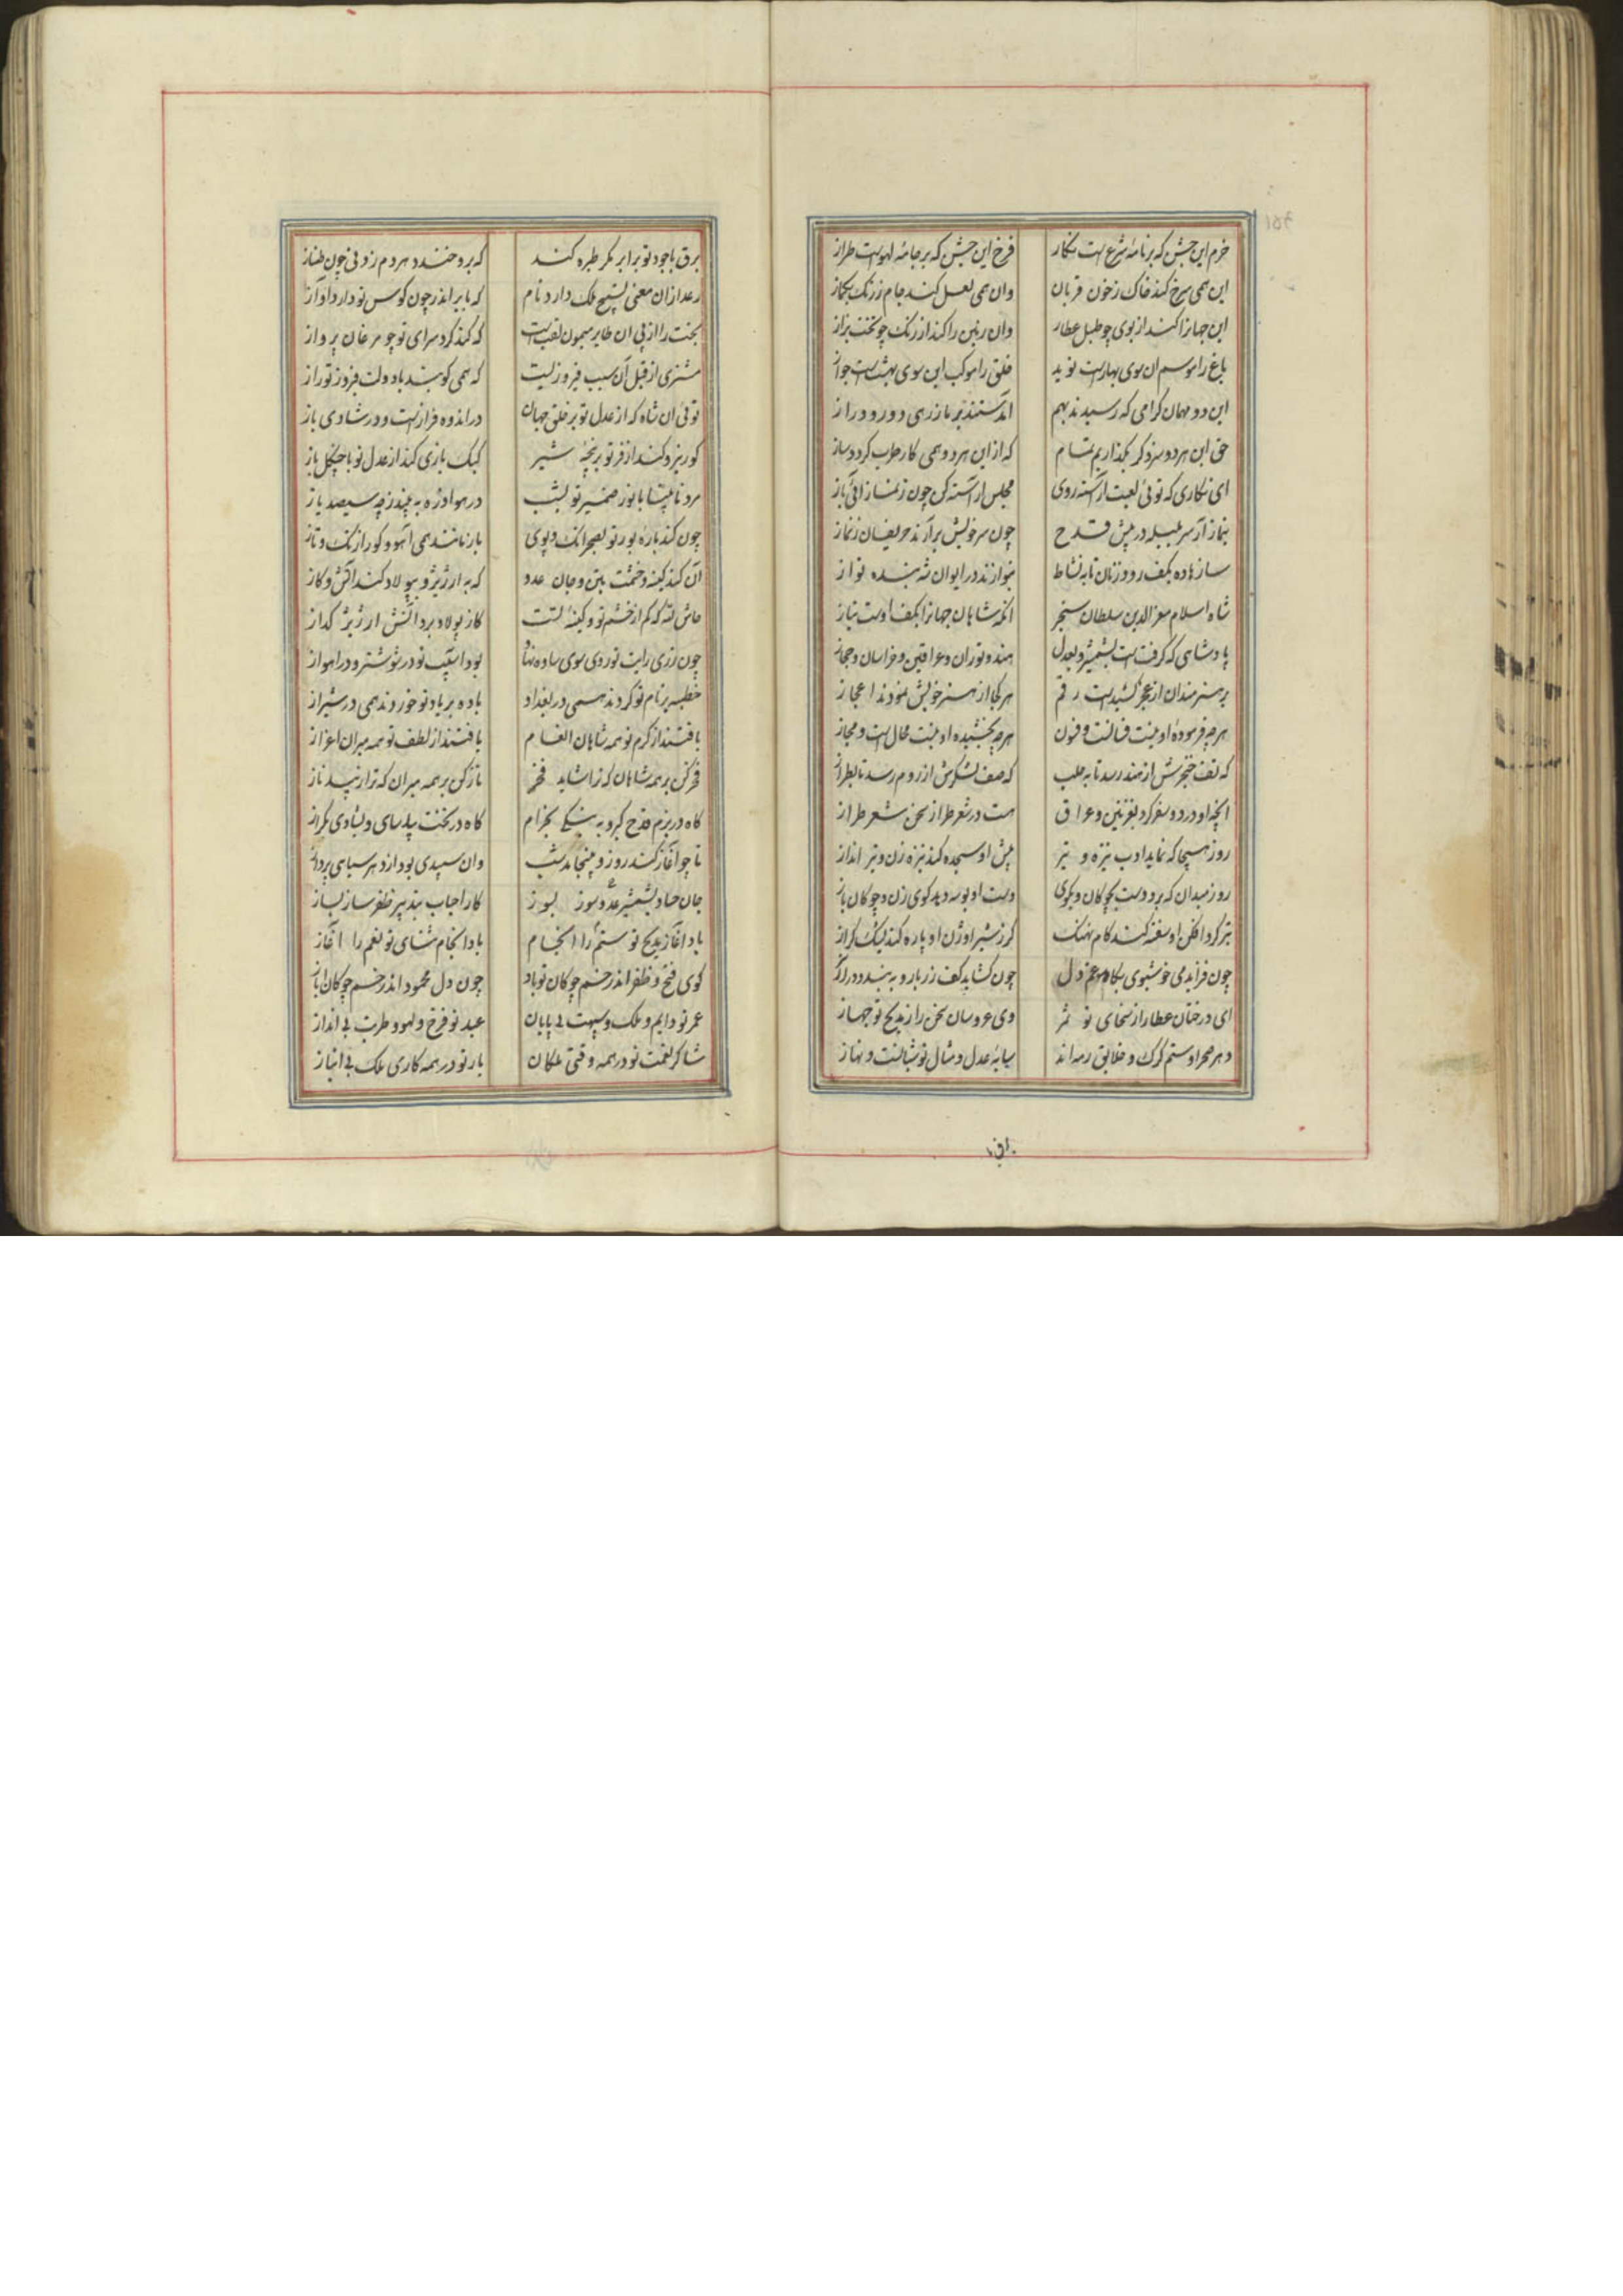 خرم این جشن که بر نامهٔ شرع است نکار فرخ این جشن که بر جامهٔ لهو است طراز
این همی سرخ کند خاک زخون قربان وان همی لعل کند جام زرنک بکماز
این جهانرا کند از بوی چو طبل عطار وان زمین را کند از رنک چو تخت بزاز
باغ را موسم ان سوی بهار است نوید خلق را موکب این سوی بهشت است جواز
این دو مهمان کرامی که رسیدند بهم آمدستند بر ما ز رهی دور و دراز
حق این هر دو سزد کر بکذاریم تمام که از این هر دو همی کار طرب کردد ساز
ای نکاری که توئی لعبت آراسته روی مجلس آراسته کن چون ز نماز آئی باز
بنماز آر سر بلبله در پیش قدح چون سر خویش برآرند حریفان ز نماز
ساز باده بکف رود زنان تا به نشاط بنوازند در ایوان شه بنده نواز
شاه اسلام معز الدین سلطان سنجر انکه شاهان جهانرا بکف اوست نیاز
پادشاهی که کرفته است بشمشیر و بعدل هند و توران و عراقین و خراسان و حجاز
بر هنرمندان از عجز کشیده است رقم هر کجا از هنر خویش نمودند اعجاز
هر چه فرمودهٔ او نیست فسانست و فنون هر چه بخشیده او نیست محال است و مجاز
که تف خنجرش از هند رسد تا به حلب که صف لشکرش از روم رسد تا بطراز
انچه او در دو سفر کرد بغزنین و عراق هست در شعر طراز سخن شعر طراز
روز هیجا که نماید ادب نیزه و تیر پیش او سجده کند نیزه زن و تیر انداز
روز میدان که برد دست بچوکان و بکوی دست او بوسه دهد کوی زن و چوکان باز
تیر کرد افکن او سفته کند کام نهنک کرز شیر اوژن او پاره کند یشک کراز
چون فزاید می خوشبوی بکام دل چون کشاید کف زر بار و ببندد در آز
ای درختان عطا را ز سخای تو ثمر وی عروسان سخن را ز مدیح تو جهاز
دهر صحرا و ستم کرک و خلایق رمه اند سایهٔ عدل و مثال تو شبانست و نهاز
برق
برق با جود تو بر ابر مکر طیره کند که برو خندد هر دم زدنی چون طناز
رعد از ان معنی تسبیح ملک دارد نام که بابر اندر چون کوس تو دارد آواز
بخت را از پی ان طایر میمون لقب است که کند کرد سرای تو چو مرغان پرواز
مشتری از قبل آن سبب فیروزیست که همی کوبند با دولت فیروز تو راز
توئی ان شاه که از عدل تو بر خلق جهان در اندوه فراز است و در شادی باز
کور بازی کند از فر تو بر پنجهٔ شیر کبک بازی کند از عدل تو با چنکل باز
مرد نابینا با نور ضمیر تو بشب در هوا ذره ببیند
چون کند بارهٔ بور تو بصحرا تک و پوی باز مانند همی آهو و کور از تک و تاز
آن کند کینه و خشمت بتن و جان عدو که به ارزیز و بپولاد کند آتش و کاز
حاش لله که کم از خشم تو و کینهٔ تست کاز پولاد برد آتش ارزیز کداز
چون زدی رایت نوروی سوی ساوه نهاد بود اسیب تو در شوشتر و در اهواز
خطبه بر نام تو کردند همی در بغداد باده بر یاد تو خوردند همی در شیراز
یافتند از کرم تو همه شاهان انعام یافتند از لطف تو همه میران اعزاز
فخر کن بر همه شاهان که ترا شاید فخر ناز کن بر همه میران که ترا زیبد ناز
کاه در بزم قدح کیر و به نیکی بخرام کاه در تخت بپاسای و بشادی بکراز
تا چو آغاز کند روز و بینجامد شب وان سپیدی بود از دهر سیاهی پرداز
جان حساد بشمشیر عدو سوز بسوز کار احباب بتدبیر ظفر ساز بساز
باد آغاز مدیح تو ستم را انجام باد انجام ثنای تو نعم را آغاز
کوی فتح و ظفر اندر خم چوکان تو باد چون دل محمود اندر خم چوکان ایاز
عمر تو دایم و ملک و سپهت بی پایان عید تو فرخ و لهو و طربت بی انداز
شاکر نعمت تو در همه وقتی ملکان یار تو در همه کاری ملک بی انباز